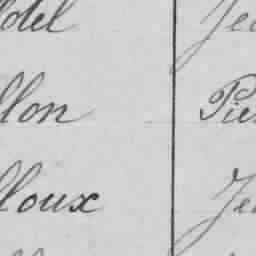 odel Jea
llon Pier
lloux Jea